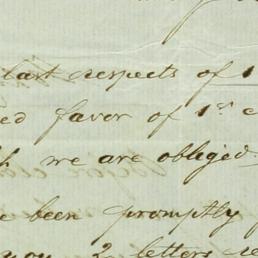 last respects of 1
ed favor of 1st c
h we are obliged.
e been promptly f
you 2 letters re